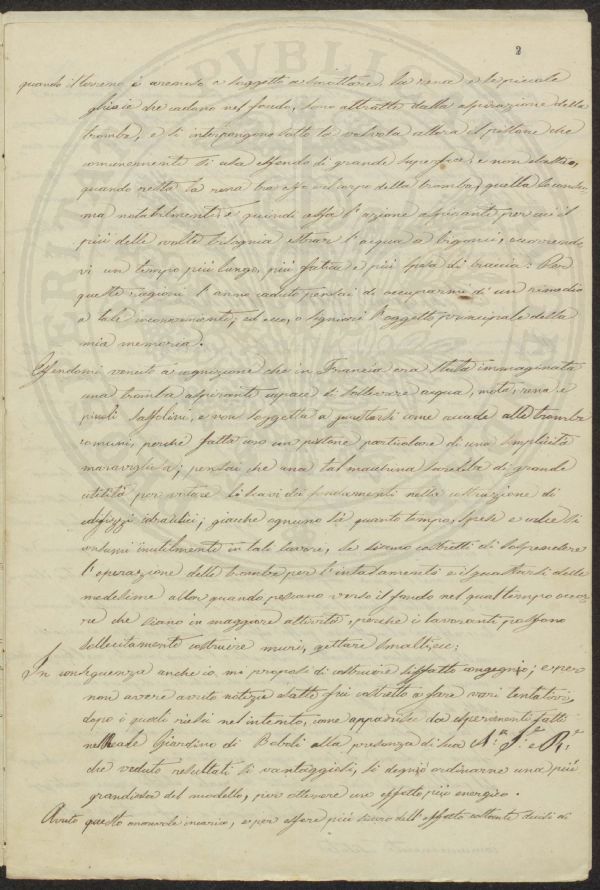 2
quando il terreno è arenoso e soggetto a smottare, la rena e le piccole
ghiaie che cadano nel fondo, sono attratte dalla aspirazione della
tromba, e si interpongono sotto la valvola allora il pistone che
comunemente si usa essendo di grande superfice, e non elastico,
quando resta la rena tra esso ed il corpo della tromba, quella la consu-
ma notabilmente, e quindi cessa l'azione aspirante per cui il
più delle volte bisognia estrar l'acqua a bigonci, occorrendo
vi un tempo più lungo, più fatica e più spesa di braccia: Per
queste ragioni l'anno caduto pensai di occuparmi di un rimedio
a tale inconveniente, ed ecco, o Signiori l'oggetto principale della
mia memoria.
Essendomi venuto a cognizione che in Francia era stata immaginata
una tromba aspirante capace di sollevare acqua, mota, rena e
piccoli sassolini, e non soggetta a guastarsi come accade alle trombe
comuni, perchè fatto uso un pistone particolare di una semplicità
maravigliosa; pensai che una tal macchina sarebbe di grande
utilità per votare li scavi dei fondamenti nella costruzione di
edifizzi idraulici; giacchè ognuno sà quanto tempo, spese e
consumi inutilmente in tali lavori, se siamo costretti di sospendere
l'operazione delle trombe per l'intasamento e il guastarsi delle
medesime allor quando pescano verso il fondo nel qual tempo occor-
re che siano in maggiore attività, perchè i lavoranti possono
sollecitamente costruire muri, gettare smalti, ec:
In conseguenza anche io, mi proposi di costruire siffatto congegnio; e per
non avere avuto notizie esatte fui costretto a fare vari tentativi,
dopo i quali riescì nel intento, come apparisce da esperimenti fatti
nel Reale Giardino di Boboli alla presenza di sua A. I. e R.
che veduto resultati sì vantaggiosi, si degniò ordinarne una più
grandiosa del modello, per ottenere un effetto più energico.
Avuto questo onorevole incarico, e per essere più sicuro dell'effetto costante decisi di